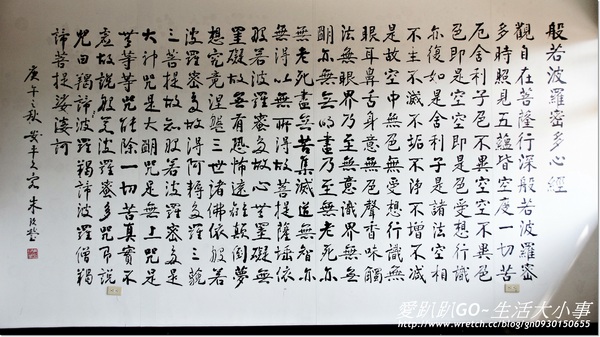 般若波羅密多心經
觀自在菩薩行深般若波羅密
多時照見五蘊皆空度一切苦
厄舍利子色不異空空不異色
色即是空空即是色受想行識
亦復如是舍利子是諸法空相
不生不滅不垢不淨不增不減
是故空中無色無受想行識無
眼耳鼻舌身意無色聲香味觸
法無眼界乃至無意識界無無
明亦無無明盡乃至無老死亦
無老死盡無苦集滅道無智亦
無得以無所得故菩提薩埵依
般若波羅密多故心無罣礙無
罣礙故無有恐怖遠離顛倒夢
想究竟涅槃三世諸佛依般若
波羅密多故得阿耨多羅三藐
三菩提故知般若波羅密多是
大神咒是大明咒是無上咒是
無等等咒能除一切苦真實不
虛故說般若波羅密多咒即說
咒曰羯諦波羅羯諦波羅僧羯
諦菩提娑婆訶
庚午之秋 安平 朱玖瑩
愛趴趴GO~生活大小事
http://www.wretch.cc/blog/gh0930150655